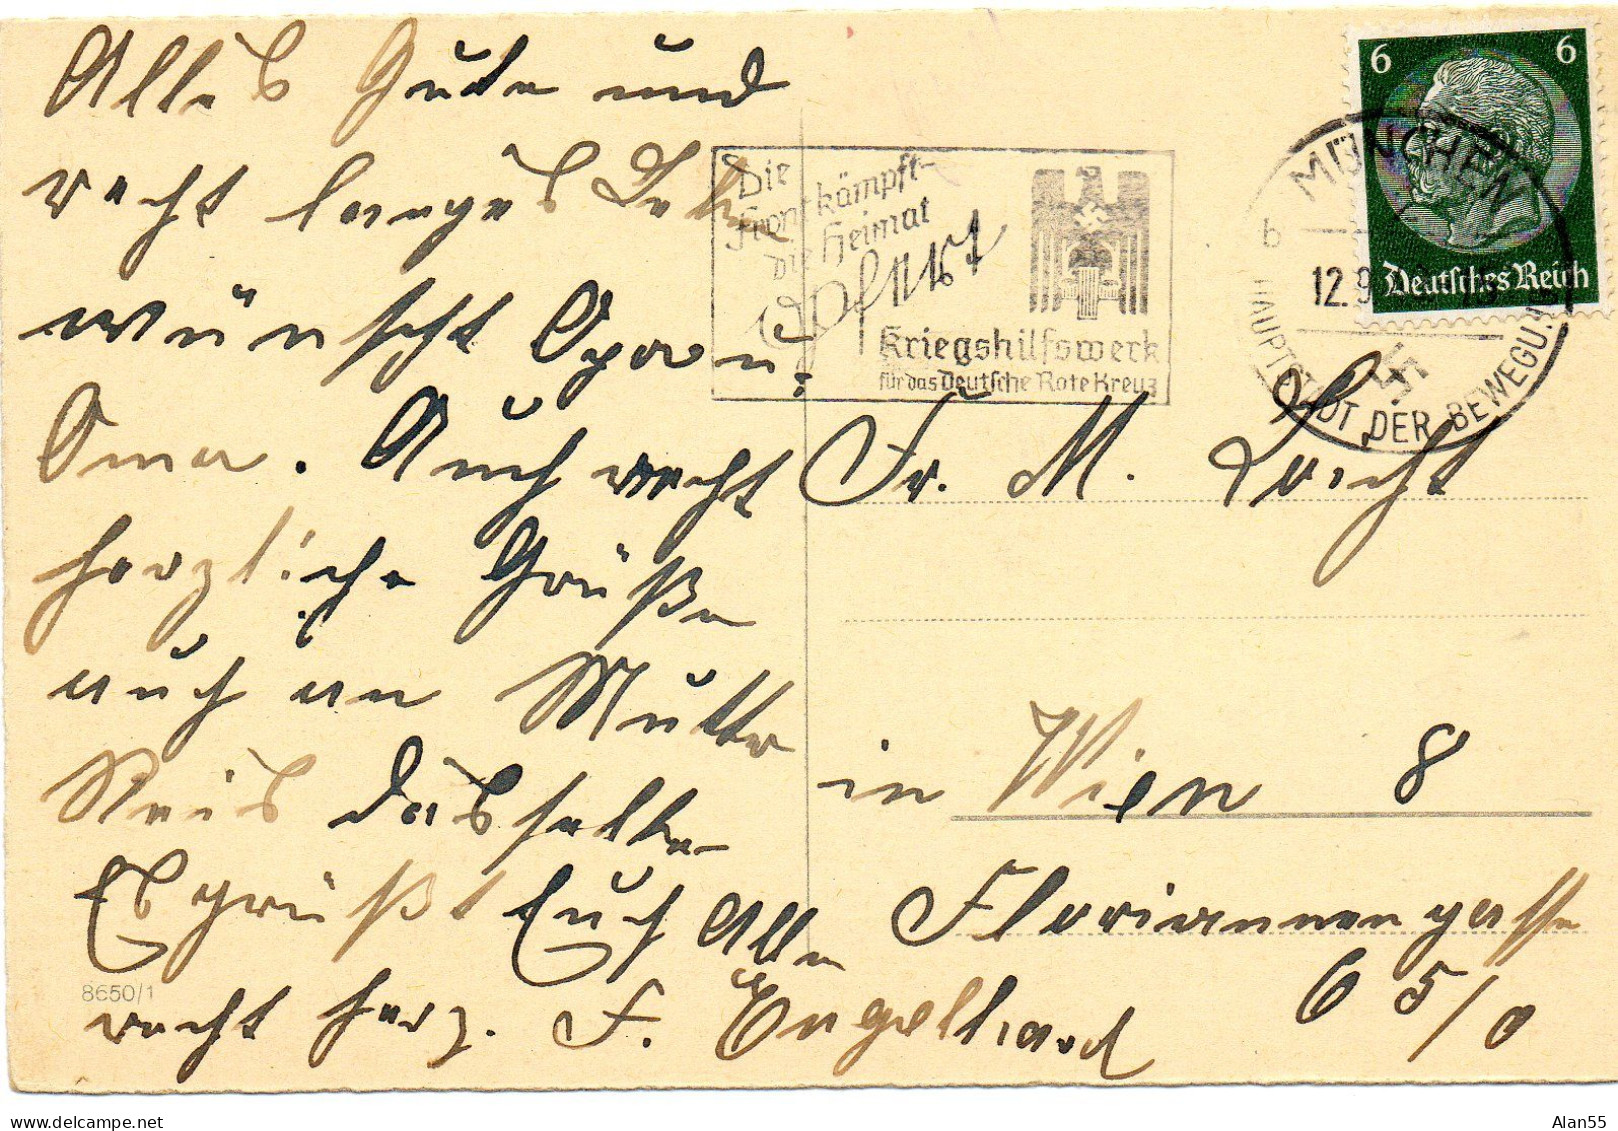 Alles Gute und
recht langes Leben
wünscht Opa u.
Oma. Auch recht
herzliche Grüße
auch an Mutter
Reis dasselbe
Es grüßt Euch Alle
recht herz. F. Engelhard
8650/1
Die
Front kämpft-
Die Heimat
opfert
Kriegshilfswerk
für das Deutsche Rote Kreuz
MÜNCHEN
b
12.9
HAUPTSTADT DER BEWEGUNG
6 6
Deutsches Reich
Fr. M.
in Wien 8
Floriannengasse
65/0
delcampe.net
Alan55